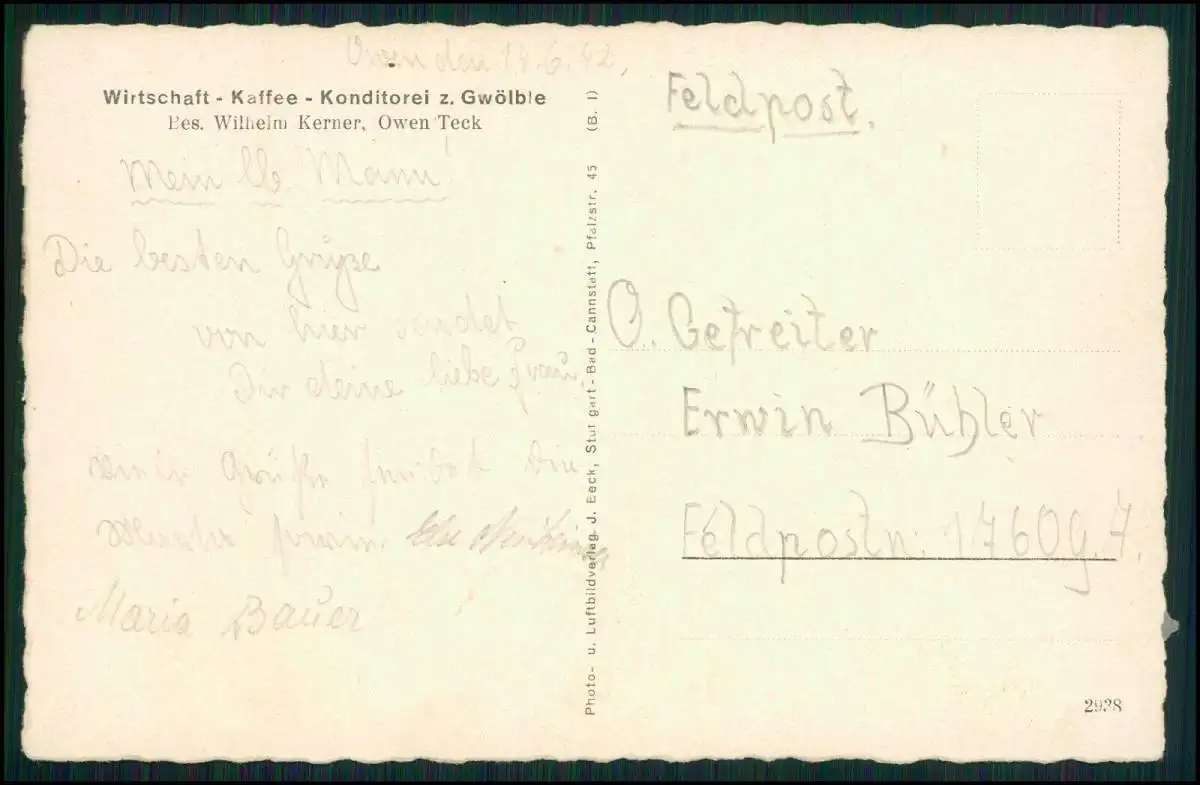 Owen den 18.6.42.
Wirtschaft - Kaffee - Konditorei z. Gwölble
Bes. Wilhelm Kerner, Owen Teck
Mein lb. Mann!
Die besten Grüße
von hier sendet
Dir deine liebe Frau.
viele Grüße sendet
Maria Bauer
Photo- u. Luftbildverlag J. Beck, Stuttgart-Bad-Cannstatt, Pfalzstr. 45 (B. I)
Feldpost.
O. Gefreiter
Erwin Bühler
Feldpostn: 17609.7.
2938